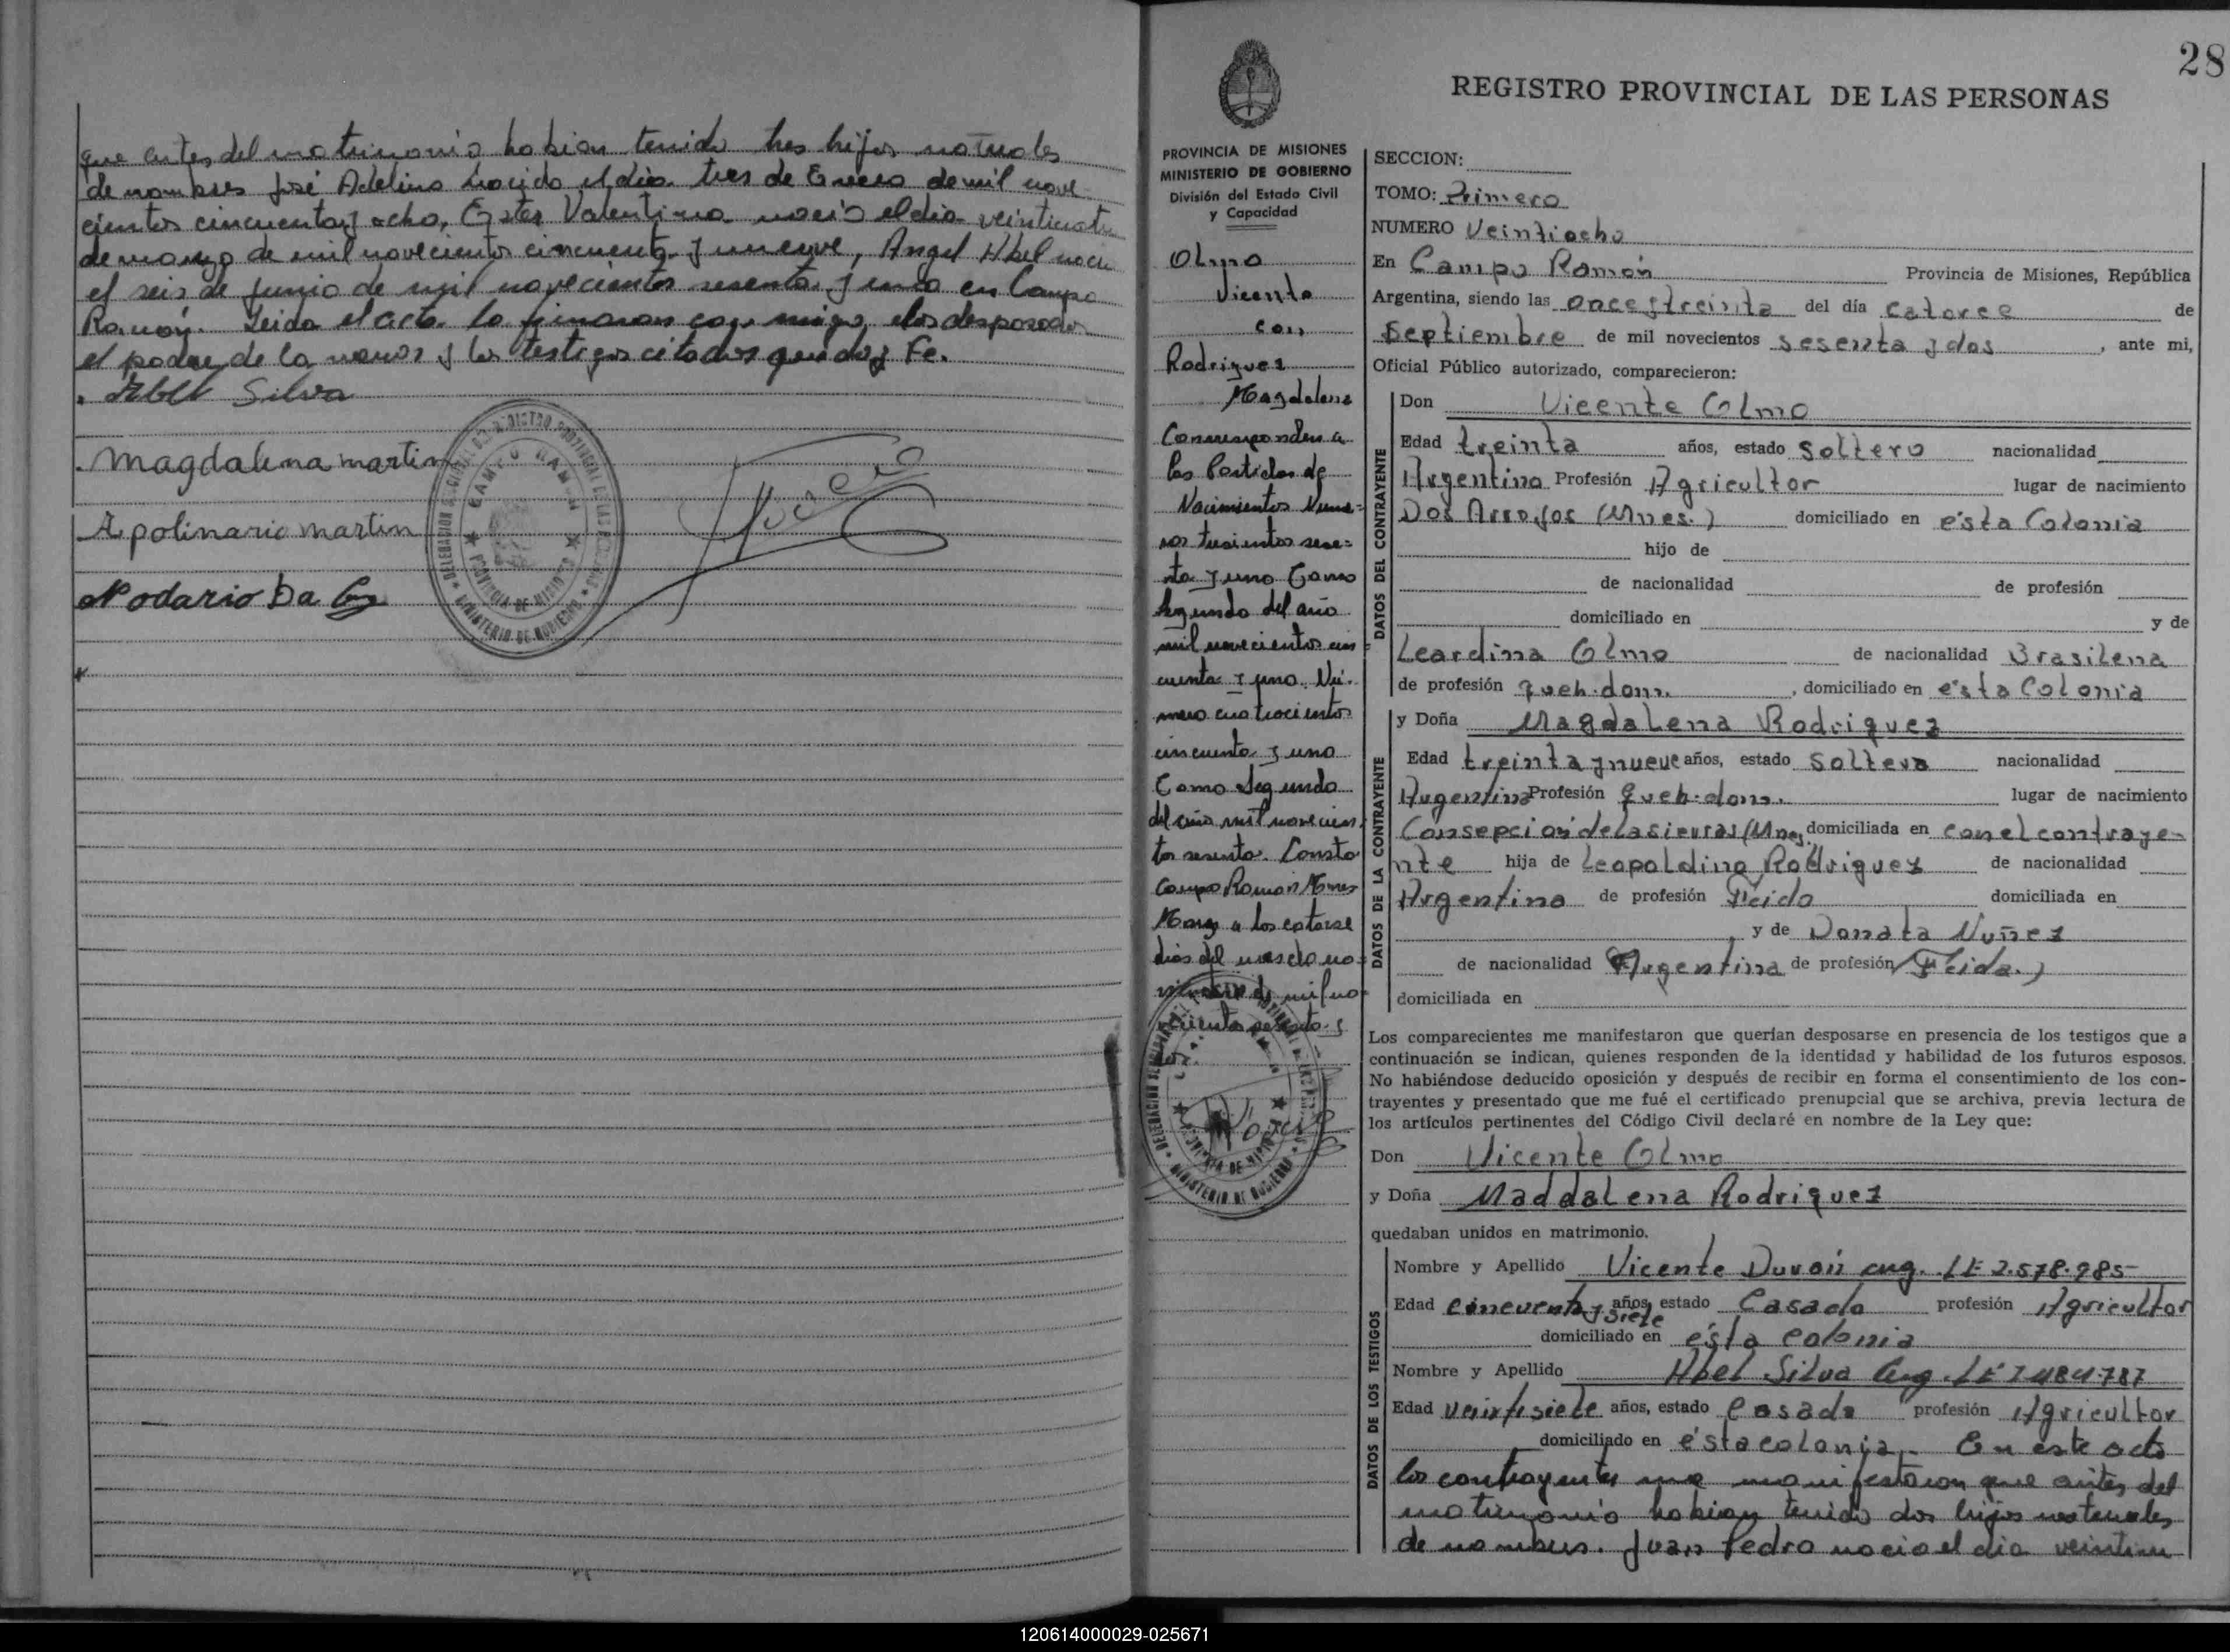 que antes del matrimonio habian tenido tres hijos naturales
de nombres José Adelino nacido el dia tres de Enero de mil nove
cientos cincuenta y ocho, Ester Valentina nació el dia veinticuatro
de marzo de mil novecientos cincuenta y nueve, Angel Abel nacio
el seis de Junio de mil novecientos sesenta y uno en Campo
Ramón. Leida el acta la firmaron conmigo, los desposados
el padre de la menor y los testigos citados que doy Fe.
Abel Silva
magdalena martin
Apolinario martin
Nodario Da
CAMPO RAMON
PROVINCIA DE MISIONES
MINISTERIO DE GOBIERNO
28
REGISTRO PROVINCIAL DE LAS PERSONAS
PROVINCIA DE MISIONES
MINISTERIO DE GOBIERNO
División del Estado Civil
y Capacidad
Olmo
Vicente
con
Rodriguez
Magdalena
Corresponden a
las Partidas de
Nacimientos Nume=
ros trecientos sese=
nta y uno Tomo
Segundo del año
mil novecientos cin
cuenta y uno. Nú.
mero cuatrocientos
cincuenta y uno
Tomo Segundo
del año mil novecien
tos sesenta. Consta
Campo Ramon Mnes
a los catorse
dias del mes de no=
viembre de mil no=
vecientos sesenta y
dos.
SECCION:
TOMO: Primero
NUMERO Veintiocho
En Campo Ramón Provincia de Misiones, República
Argentina, siendo las once y treinta del día catorce de
Septiembre de mil novecientos sesenta y dos, ante mi,
Oficial Público autorizado, comparecieron:
DATOS DEL CONTRAYENTE
Don Vicente Olmo
Edad treinta años, estado soltero nacionalidad
Argentino Profesión Agricultor lugar de nacimiento
Dos Arroyos (Mnes.) domiciliado en ésta Colonia
hijo de
de nacionalidad de profesión
domiciliado en y de
Leardina Olmo de nacionalidad Brasilena
de profesión queh.dom. , domiciliado en ésta Colonia
DATOS DE LA CONTRAYENTE
y Doña Magdalena Rodriguez
Edad treinta y nueve años, estado Soltera nacionalidad
Argentina Profesión queh.dom. lugar de nacimiento
Consepción de la sierras (Mnes) domiciliada en con el contraye-
nte hija de Leopoldino Rodriguez de nacionalidad
Argentino de profesión Fcido domiciliada en
y de Donata Nuñez
de nacionalidad Argentina de profesión (Fcida.)
domiciliada en
Los comparecientes me manifestaron que querían desposarse en presencia de los testigos que a
continuación se indican, quienes responden de la identidad y habilidad de los futuros esposos.
No habiéndose deducido oposición y después de recibir en forma el consentimiento de los con-
trayentes y presentado que me fué el certificado prenupcial que se archiva, previa lectura de
los artículos pertinentes del Código Civil declaré en nombre de la Ley que:
Don Vicente Olmo
y Doña Maddalena Rodriguez
quedaban unidos en matrimonio.
DATOS DE LOS TESTIGOS
Nombre y Apellido Vicente Duran arg. LE 2.578.985-
Edad cincuenta y siete años, estado Casado profesión Agricultor
domiciliado en ésta colonia
Nombre y Apellido Abel Silva Arg. LE 7484787
Edad veintisiete años, estado Casado profesión Agricultor
domiciliado en ésta colonia. En este acto
los contrayentes me manifestaron que antes del
matrimonio habian tenido dos hijos naturales
de nombres. Juan Pedro nacio el dia
120614000029-025671